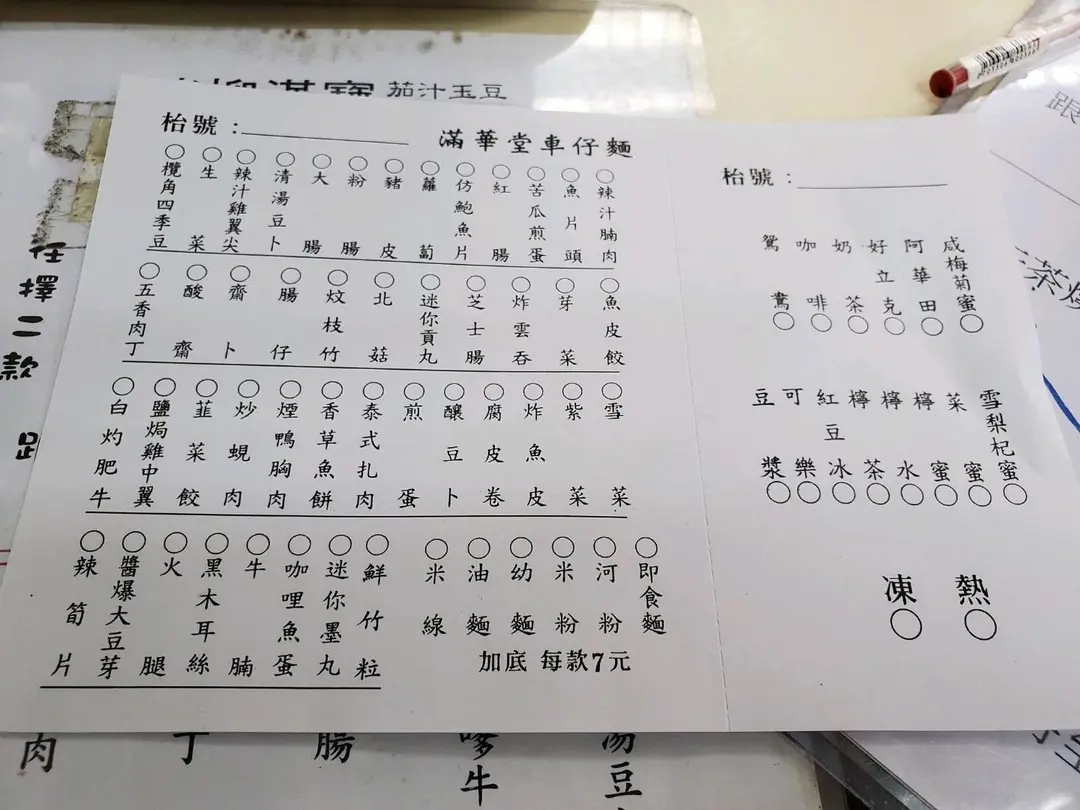 茄汁玉豆
枱號：
滿華堂車仔麵
辣汁腩肉
魚片頭
苦瓜煎蛋
紅腸
仿鮑魚片
蘿蔔
豬皮
粉腸
大腸
清湯豆卜
辣汁雞翼尖
生菜
欖角四季豆
魚皮餃
芽菜
炸雲吞
芝士腸
迷你貢丸
北菇
炆枝竹
腸仔
齋卜
酸齋
五香肉丁
雪菜
紫菜
炸魚皮
腐皮卷
釀豆卜
煎蛋
泰式扎肉
香草魚餅
煙鴨胸肉
炒蜆肉
韮菜餃
鹽焗雞中翼
白灼肥牛
鮮竹粒
迷你墨丸
咖哩魚蛋
牛腩
黑木耳絲
火腿
醬爆大豆芽
辣筍片
即食麵
河粉
米粉
幼麵
油麵
米線
加底 每款7元
枱號：
咸梅菊蜜
阿華田
好立克
奶茶
咖啡
鴛鴦
雪梨杞蜜
菜蜜
檸蜜
檸水
檸茶
紅豆冰
可樂
豆漿
熱
凍
任擇二款
肉
丁
腸
嗲牛
湯豆
跟